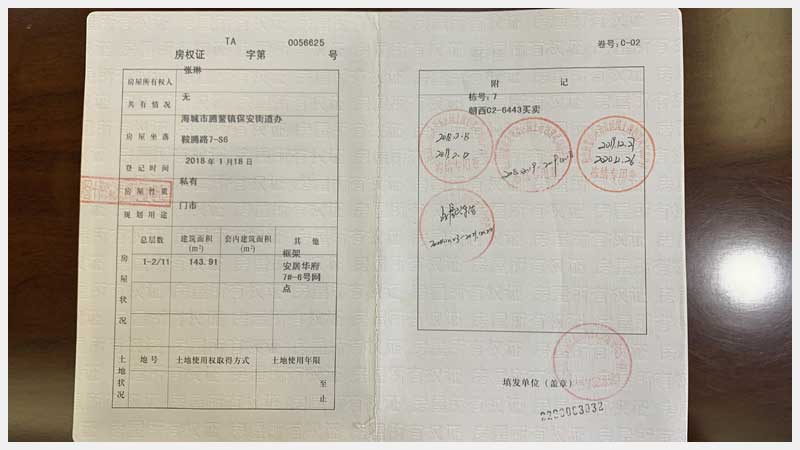 TA 0056625
房权证 字第 号
房屋所有权人 张琳
共有情况 无
房屋坐落 海城市腾鳌镇保安街道办
鞍腾路7-S6
登记时间 2018年1月18日
房屋性质 私有
规划用途 门市
房屋状况
总层数 建筑面积(m²) 套内建筑面积(m²) 其他
1-2/11 143.91 框架
安居华府
7#-6号网
点
土地状况
地号 土地使用权取得方式 土地使用年限
至
止
卷号:C-02
附 记
栋号:7
朝西C2-6443买卖
2019.12.31
专用章
填发单位(盖章)
2200003032